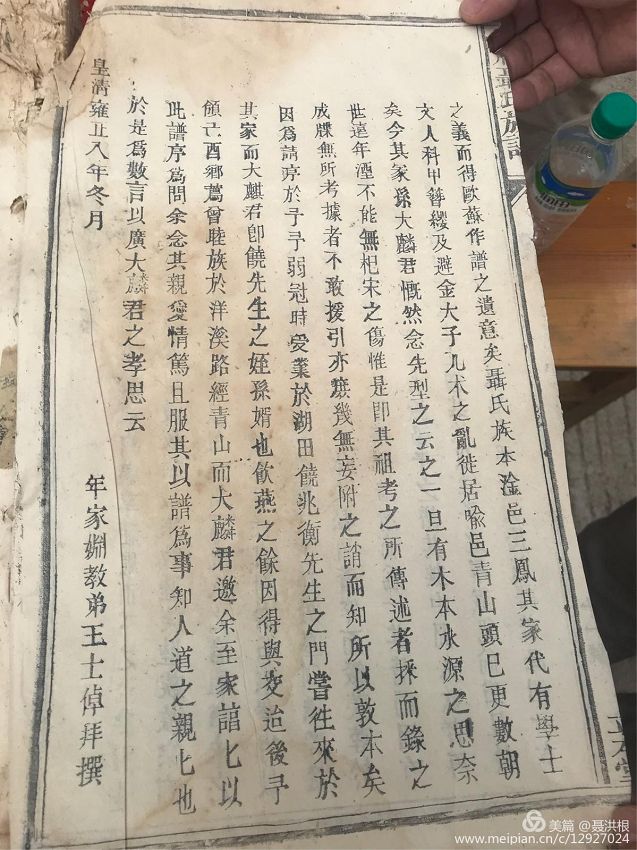 聶氏族譜
之義而得歐蘇作譜之遺意矣聶氏族本淦邑三鳳其家代有學士
文人科甲簪纓及避金大子兀朮之亂徙居喻邑青山頭已更數朝
矣今其家孫大麟君慨然念先型之云之一旦有木本水源之思奈
世遠年湮不能無杞宋之傷惟是即其祖考之所傳述者採而錄之
成牒無所考據者不敢援引亦庶幾無妄附之誚而知所以敦本矣
因為請序於予予弱冠時受業於湖田饒兆衡先生之門嘗往來於
其家而大麒君卽饒先生之姪孫婿也飲燕之餘因得與交迨後予
領己酉鄉薦曾睦族於洋溪路經青山而大麟君邀余至家諠匕以
此譜序為問余念其親愛情篤且服其以譜為事知人道之親匕也
於是為數言以廣大麟君之孝思云
皇清雍正八年冬月
年家婣教弟王士倬拜撰
美篇 @聂洪根
www.meipian.cn/c/12927024